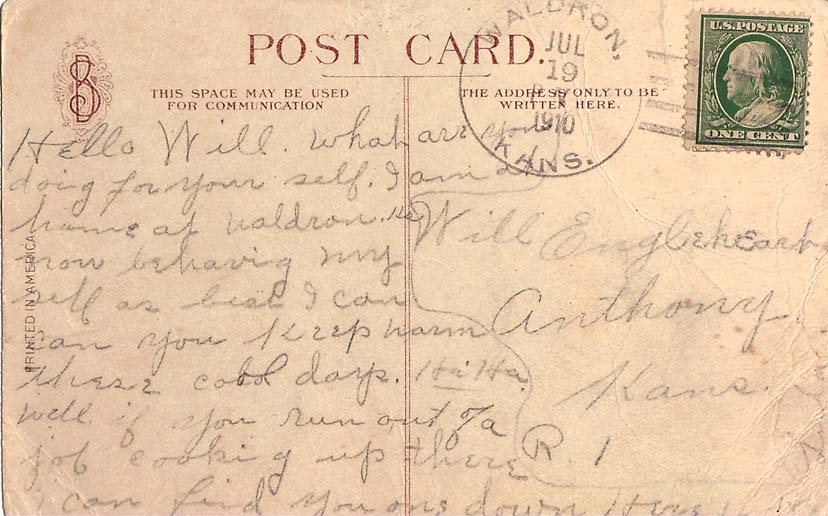 POST CARD.
THIS SPACE MAY BE USED
FOR COMMUNICATION
THE ADDRESS ONLY TO BE
WRITTEN HERE.
WALDRON,
JUL
19
1910
KANS.
U.S. POSTAGE
ONE CENT
PRINTED IN AMERICA
Hello Will. What are you
doing for your self. I am at
home at Waldron. Ks
now behavig my
self as best I can
can you keep warm
these cold days. Ha Ha.
Well if you run out of a
job cooking up there
I can find you one down Here
Will Engleheart
Anthony.
Kans.
R. 1